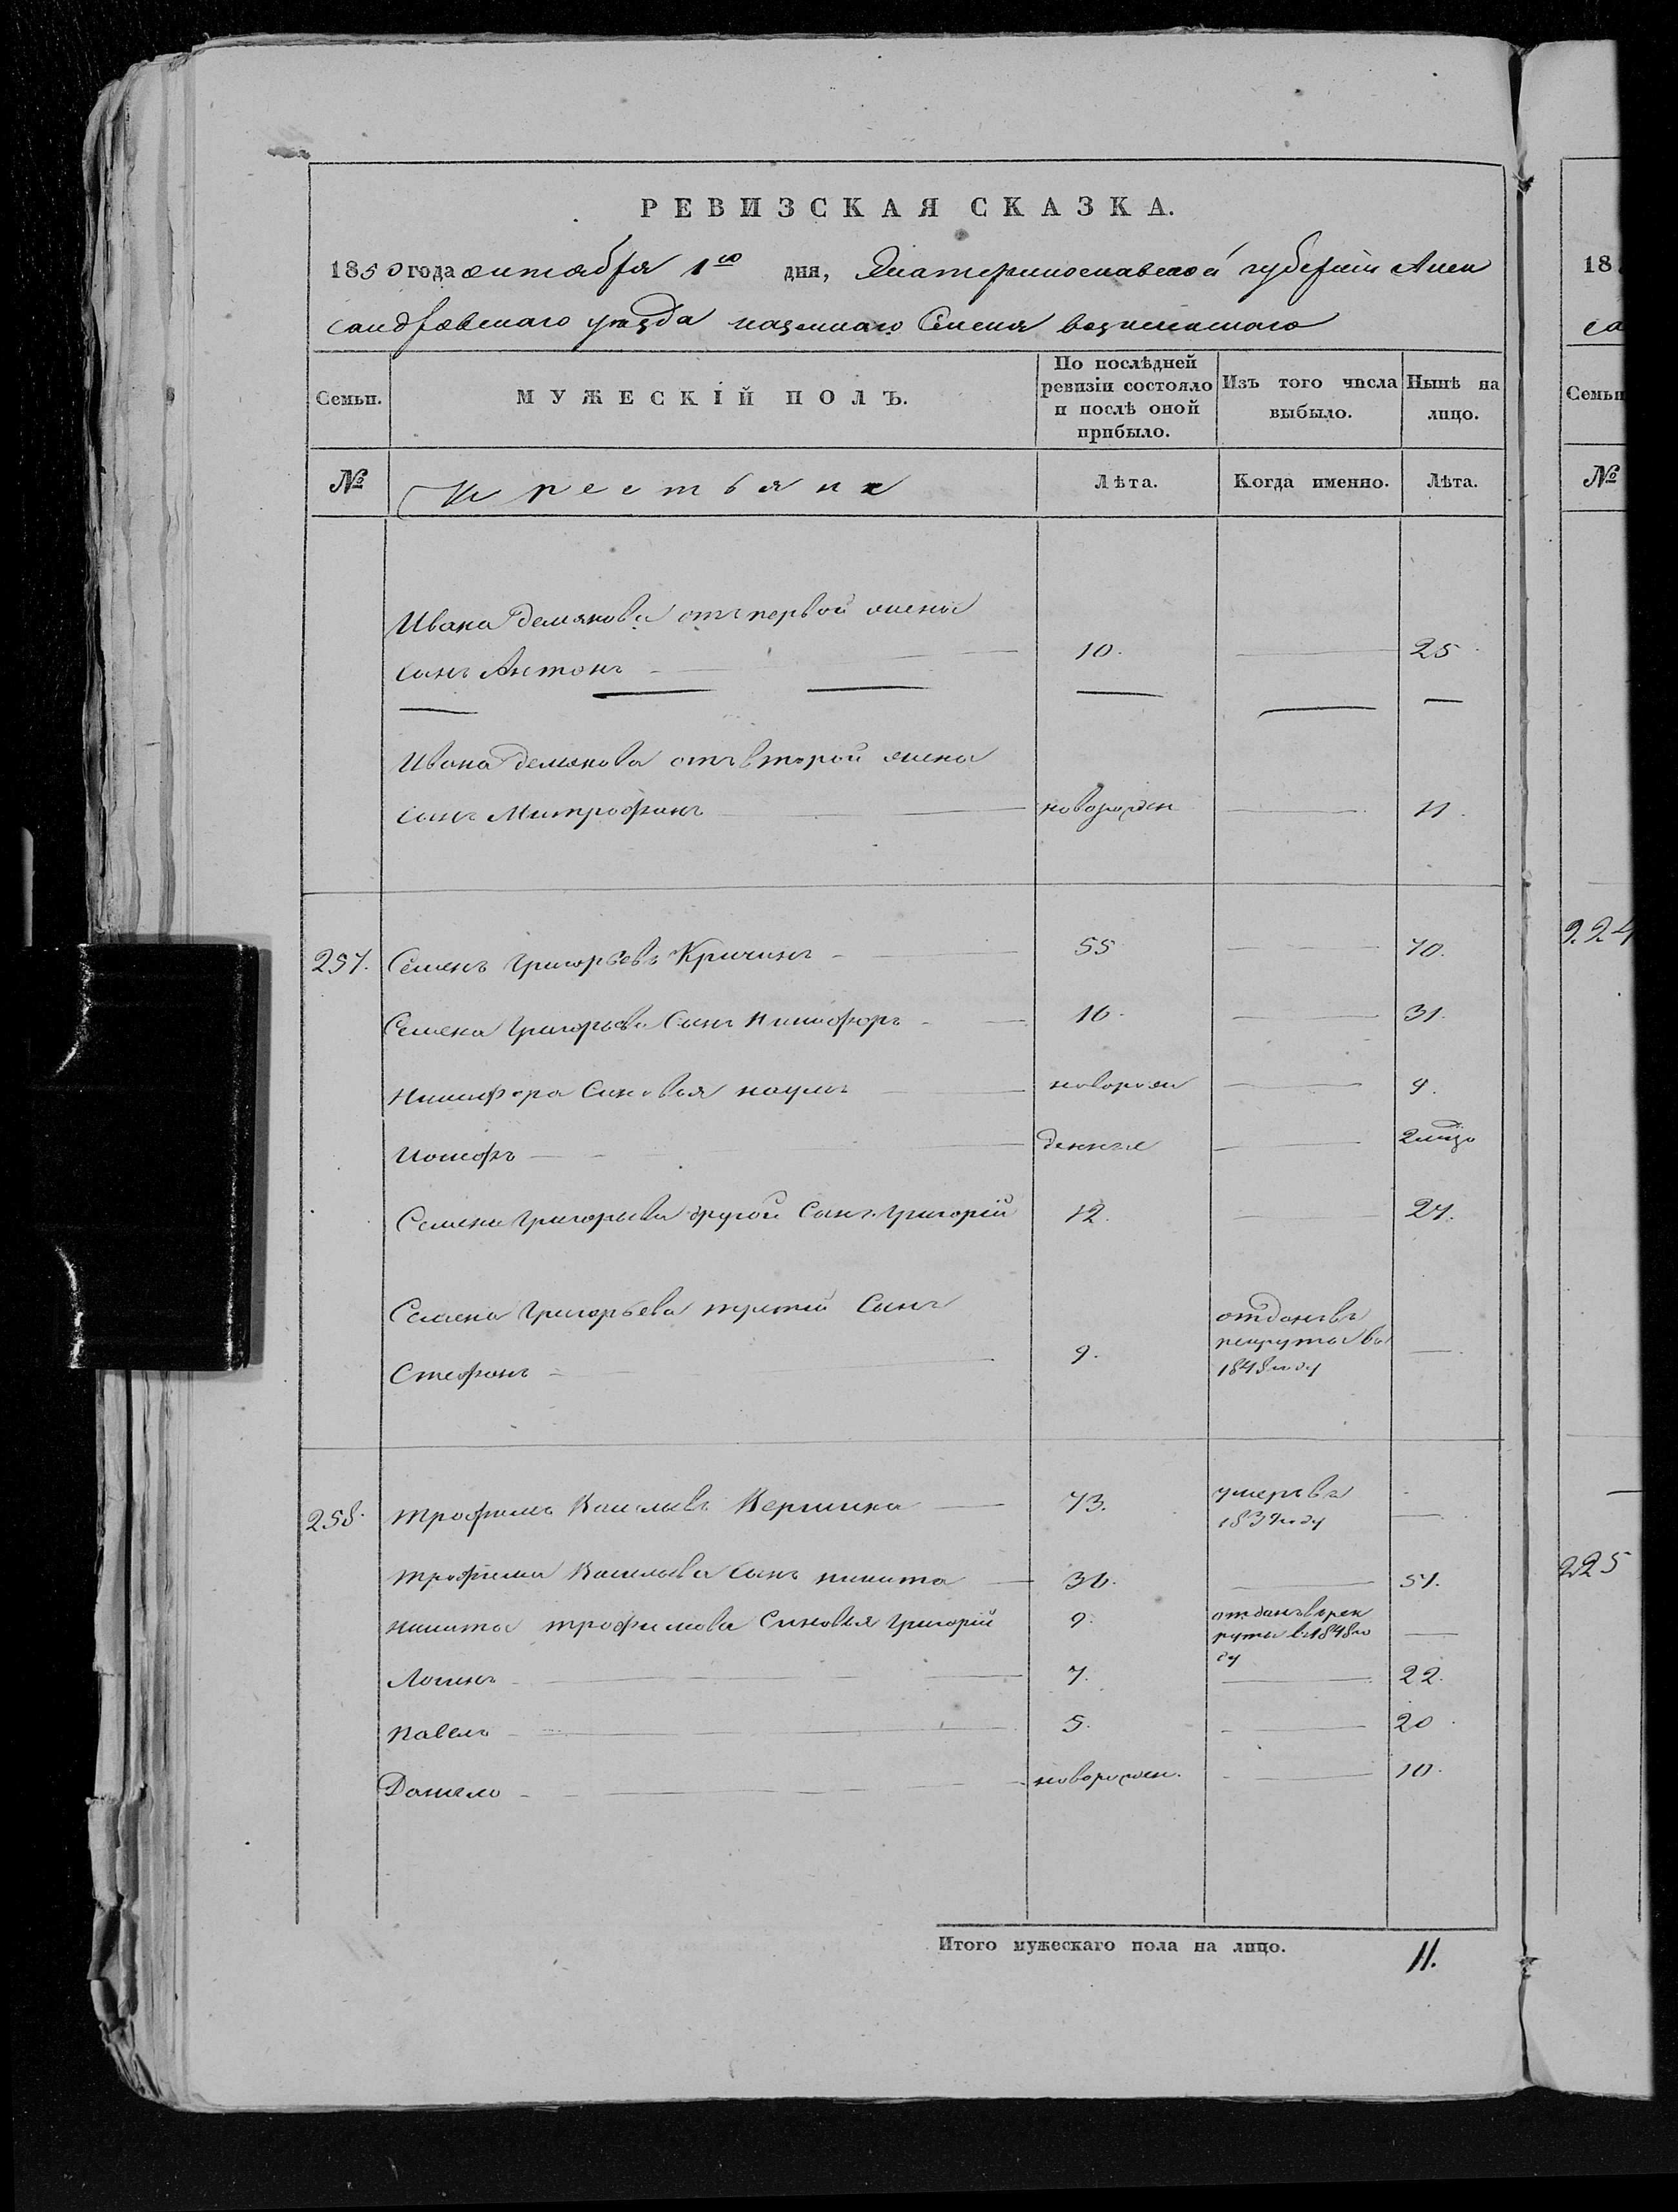 РЕВИЗСКАЯ СКАЗКА.
1850 года октября 1го дня, Екатеринославской губернии Алек
сандровскаго уезда казеннаго Селения вознесенскаго
Семьи. МУЖЕСКІЙ ПОЛЪ. По послѣдней ревизіи состояло и послѣ оной прибыло. Изъ того числа выбыло. Нынѣ на лицо.
№ Крестьяне Лѣта. Когда именно. Лѣта.
Ивана Демянова отъ первой жены
сынъ Антонъ 10. 25
Ивана Демянова отъ второй жены
сынъ Митрофанъ новорожден 11.
257. Семенъ Григорьевъ Кричинъ 55 70.
Семена Григорьева Сынъ Никифоръ 16. 31.
Никифора Сыновья наумъ новорож 9.
Иосифъ денные
Семена Григорьева другой Сынъ Григорій 12. 27.
Семена Григорьева третій Сынъ
Стефанъ 9. отданъ въ рекруты въ 1848 году
258. трофимъ Васильевъ 73. умеръ въ 1837 году
трофима Васильева сынъ никита 36. 51.
никиты трофимова Сыновья Григорій 9. отданъ в рекруты в 1848 году
Логинъ 7. 22.
Павелъ 5. 20
Данило новорожден. 10.
Итого мужескаго пола на лицо. 11.
18
са
Семьи
№
224
225